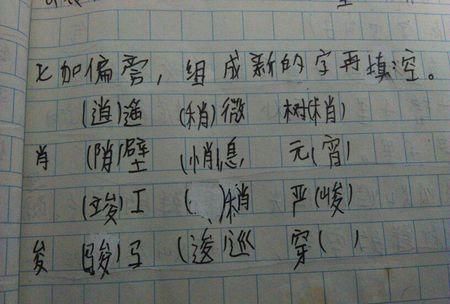 七加偏旁，组成新的字再填空。
(逍)遥 (稍)微 树(梢)
肖 (陗)壁 (悄)息 元(宵)
(竣)工 ( )稍 严(峻)
夋 (骏)马 (逡)巡 穿( )